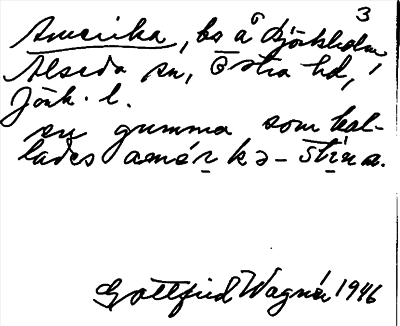 3
Amerika, bs å Björkholm
Alseda sn, Östra hd,
Jönk. l.
en gumma som kal-
lades amér̤kə-stīna.
Gottfrid Wagnér 1946